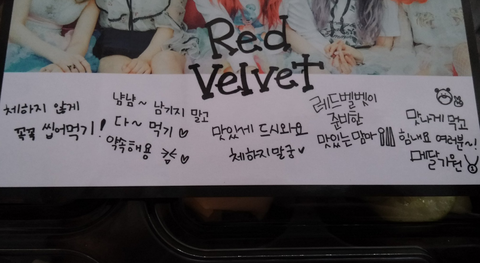 Red
Velvet
체하지 않게
꼭꼭 씹어먹기!
냠냠~ 남기지 말고
다~ 먹기♡
약속해용
맛있게 드시와요
체하지말궁♡
레드벨벳이
준비한
맛있는 맘마
맛나게 먹고
힘내요 여러분~!
메달기원